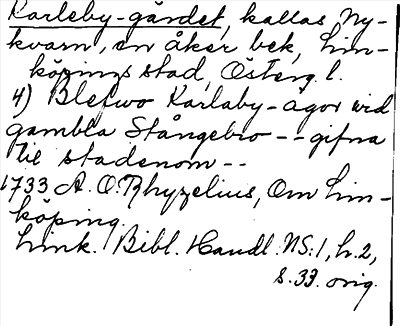 Karleby-gärdet, kallas Ny-
kvarn, en åker bek, Lin-
köpings stad, Österg. l.
4) Blefwo Karlaby-ägor wid
gambla Stångebro -- gifna
til stadenom --
1733 A. O. Rhyzelius, Om Lin-
köping.
Link. Bibl. Handl. NS:1, h. 2,
s. 33. orig.